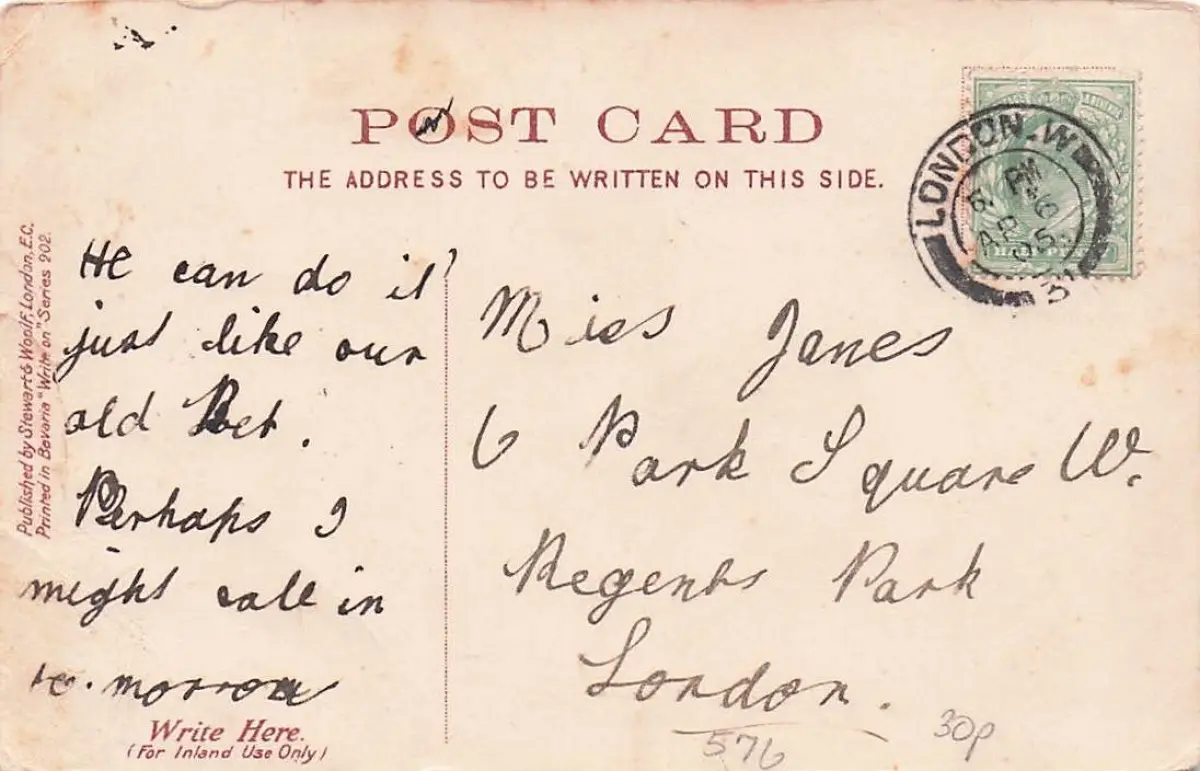 POST CARD
THE ADDRESS TO BE WRITTEN ON THIS SIDE.
LONDON.W
Published by Stewart & Woolf, London, E.C.
Printed in Bavaria "Write on" Series 902.
He can do it
just like our
old Pet.
Perhaps I
might call in
to.morrow
Write Here.
(For Inland Use Only)
Miss Janes
6 Park Square W.
Regents Park
London.
576
30p